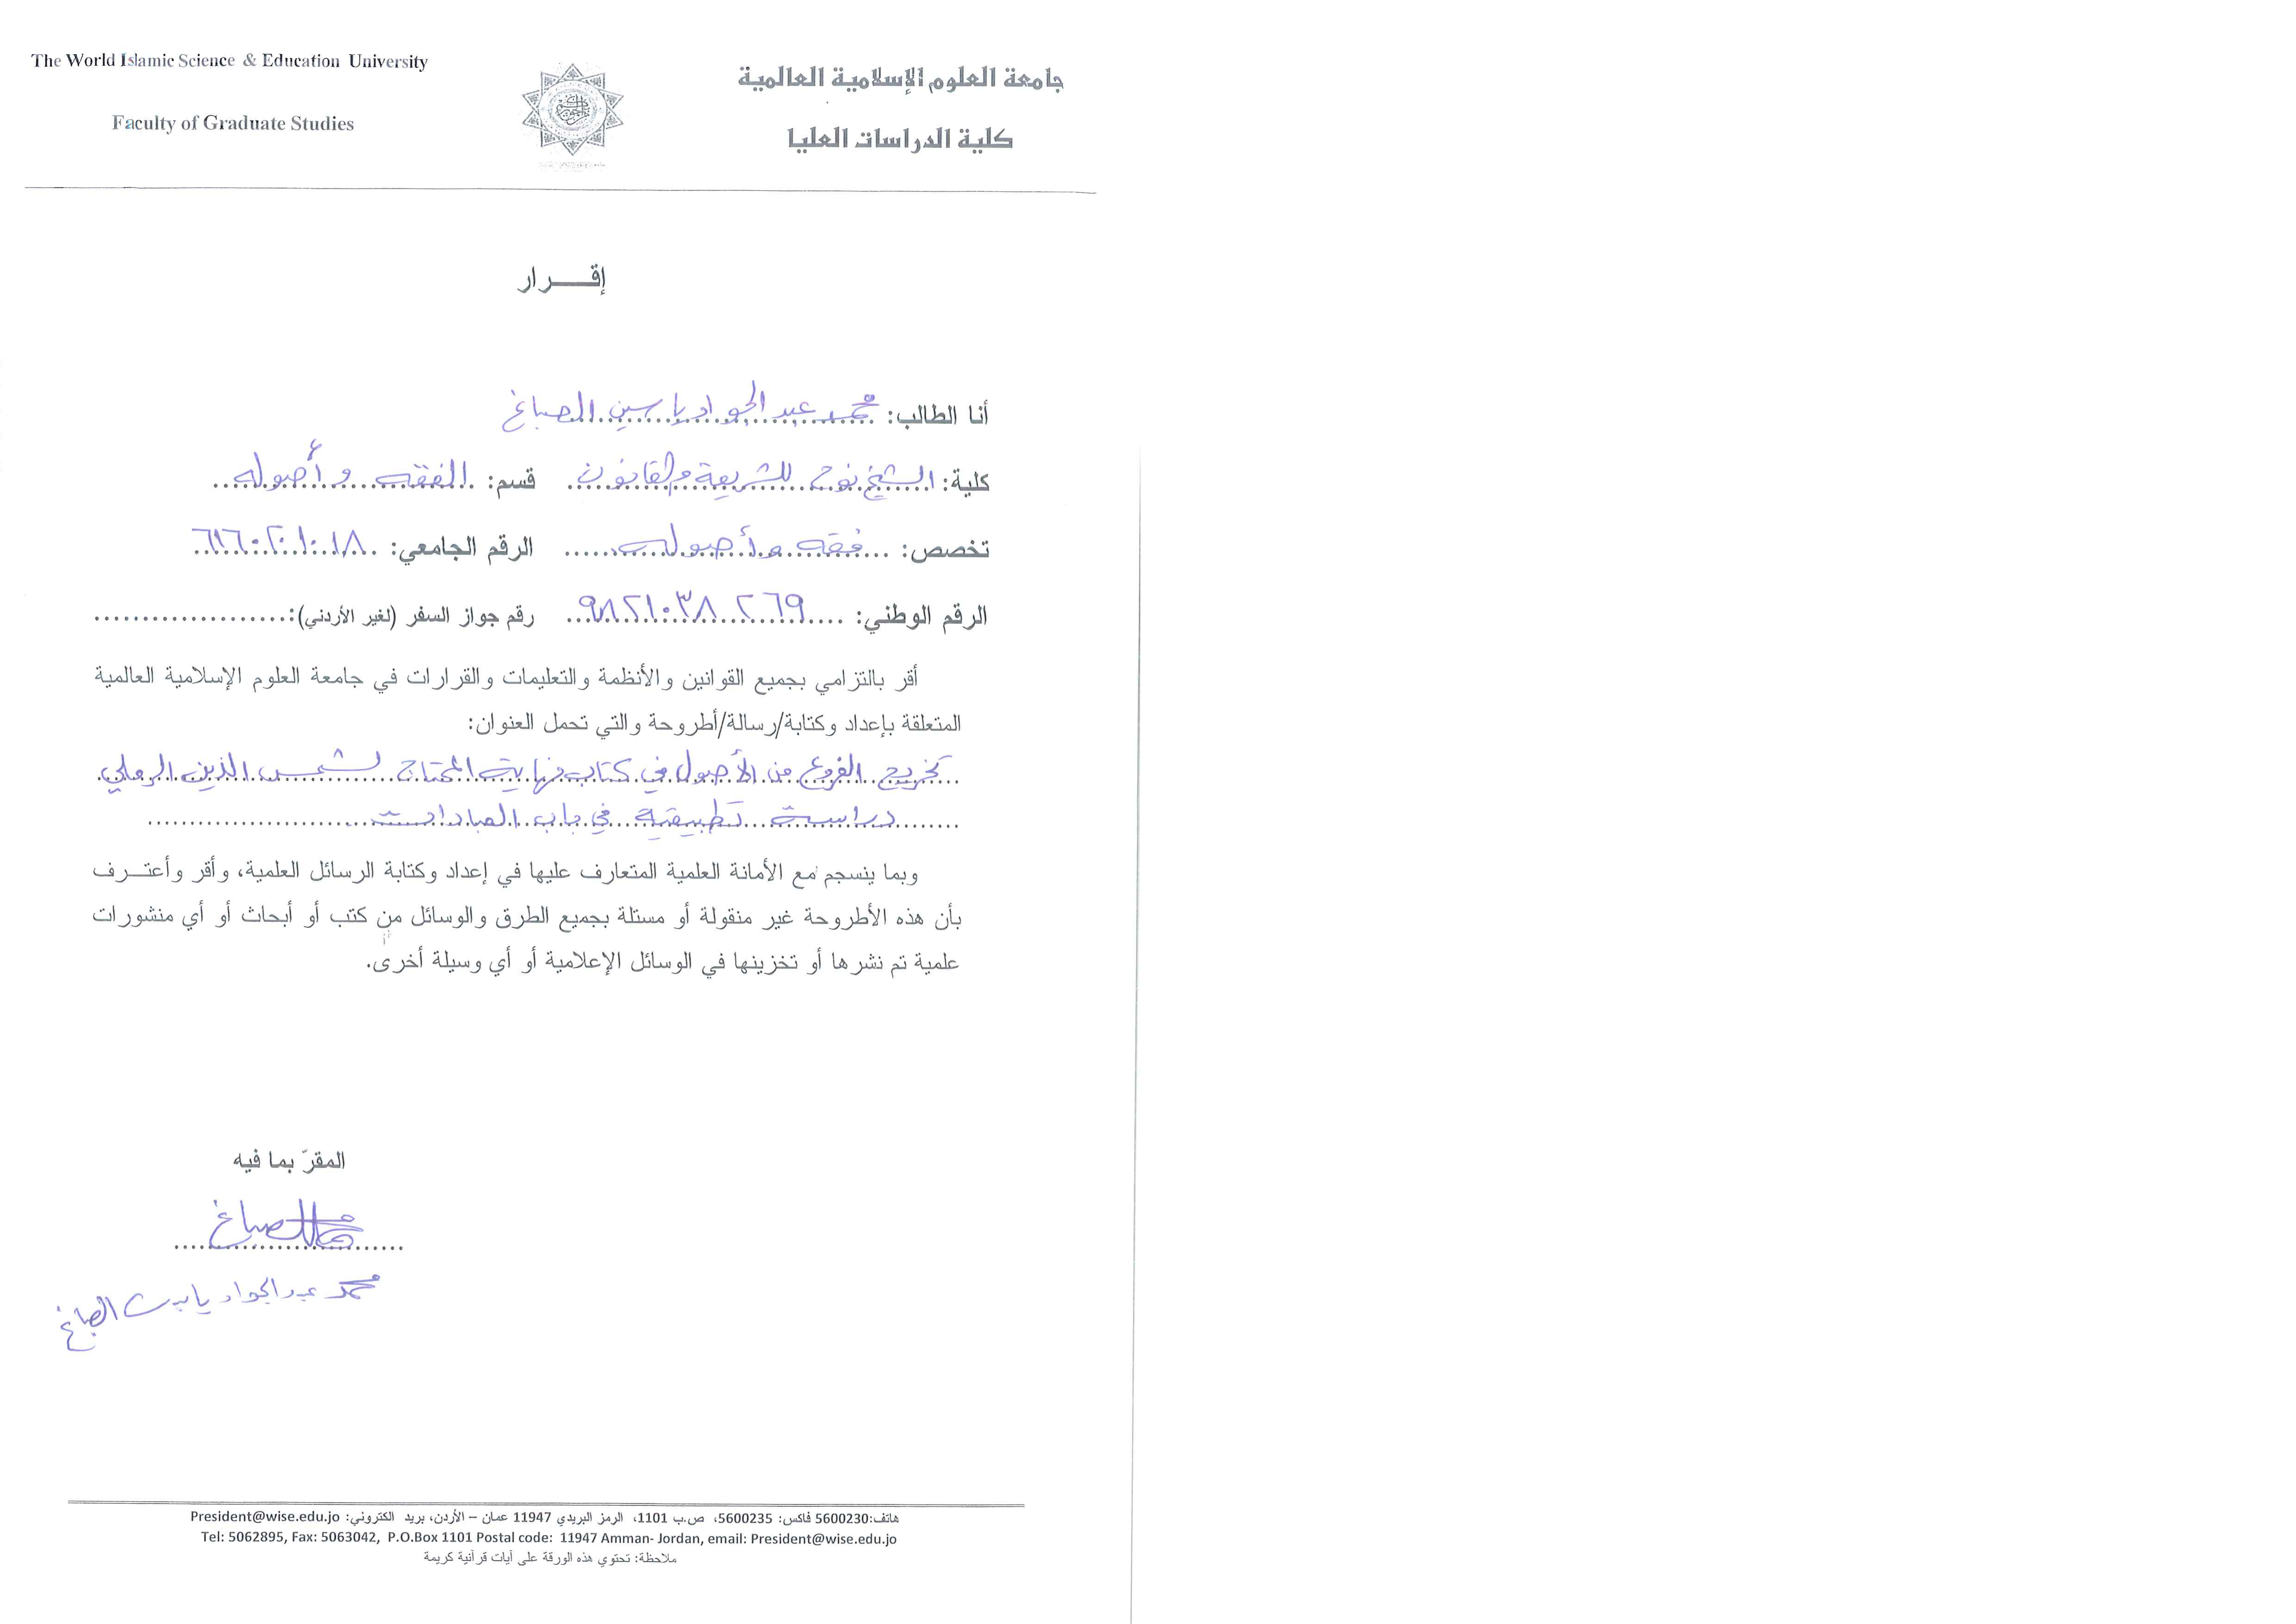 The World Islamic Science & Education University
Faculty of Graduate Studies
جامعة العلوم الإسلامية العالمية
كلية الدراسات العليا
إقـــــرار
أنا الطالب: محمد عبد الجواد ياسين الصباغ
كلية: الشيخ نوح للشريعة والقانون قسم: الفقه وأصوله
تخصص: فقه وأصوله الرقم الجامعي: ٦١٦٠٢٠١٠١٨
الرقم الوطني: ٩٨٢١٠٣٨٢٦٩ رقم جواز السفر (لغير الأردني):....................
أقر بالتزامي بجميع القوانين والأنظمة والتعليمات والقرارات في جامعة العلوم الإسلامية العالمية
المتعلقة بإعداد وكتابة/رسالة/أطروحة والتي تحمل العنوان:
تخريج الفروع من الأصول في كتاب نهاية المحتاج لشمس الدين الرملي
دراسة تطبيقية في باب العبادات
وبما ينسجم مع الأمانة العلمية المتعارف عليها في إعداد وكتابة الرسائل العلمية، وأقر وأعتـــرف
بأن هذه الأطروحة غير منقولة أو مستلة بجميع الطرق والوسائل من كتب أو أبحاث أو أي منشورات
علمية تم نشرها أو تخزينها في الوسائل الإعلامية أو أي وسيلة أخرى.
المقرّ بما فيه
محمد الصباغ
محمد عبد الجواد ياسين الصباغ
هاتف:5600230 فاكس: 5600235، ص.ب 1101، الرمز البريدي 11947 عمان – الأردن، بريد الكتروني: President@wise.edu.jo
Tel: 5062895, Fax: 5063042, P.O.Box 1101 Postal code: 11947 Amman- Jordan, email: President@wise.edu.jo
ملاحظة: تحتوي هذه الورقة على آيات قرآنية كريمة